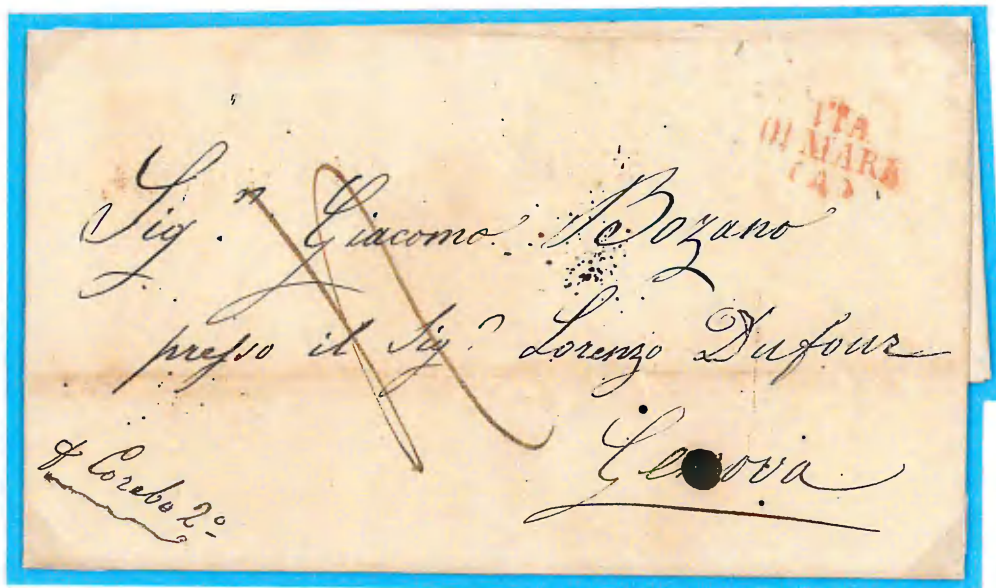 ITA
DI MARE
(A)
Sig.r Giacomo Bozano
presso il Sig.r Lorenzo Dufour
Genova
Corebo 2º